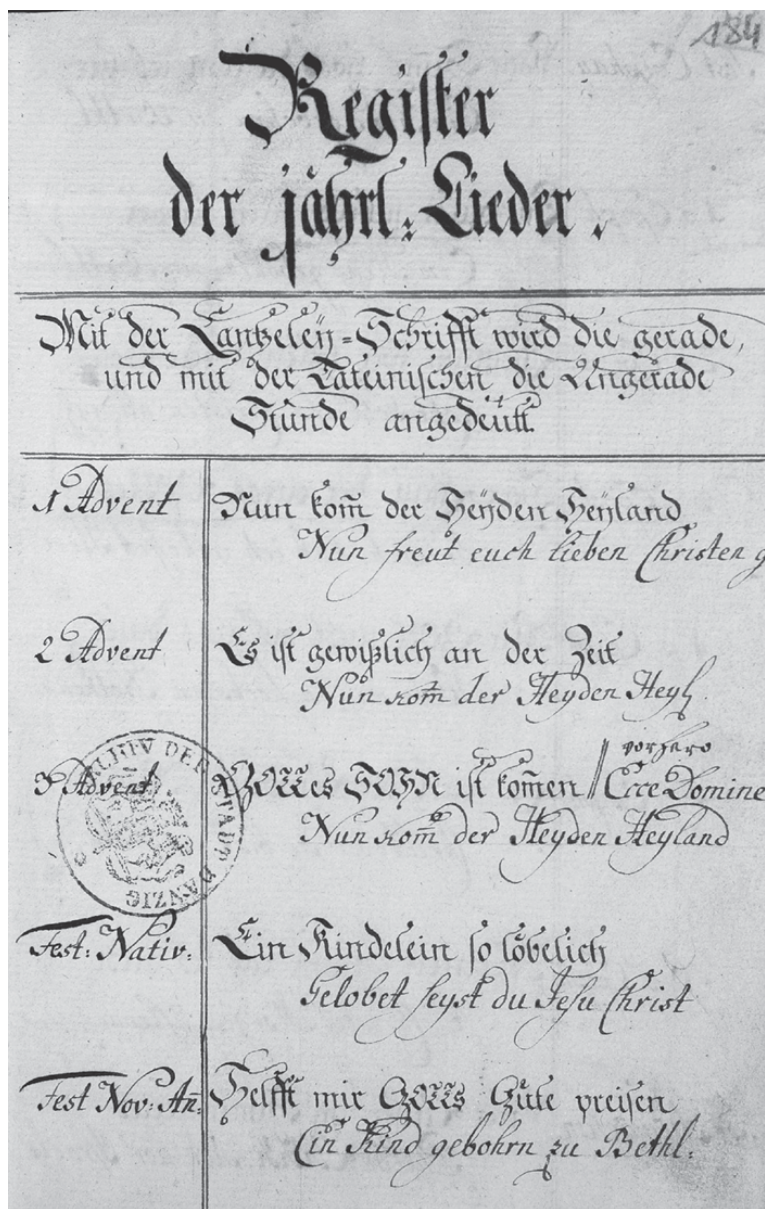 184
Register
der jährl. Lieder.
Mit der Cantzeleÿ=Schrifft wird die gerade,
und mit der Lateinischen die Ungerade
Stunde angedeütt.
1 Advent
Nun kom̄ der Heÿden Heÿland
Nun freut euch lieben Christen g
2 Advent
Es ist gewißlich an der Zeit
Nun kom̄ der Heyden Heyl.
3 Advent.
GOTTes SOHN ist kom̄en // Ecce Domine
Nun kom̄ der Heyden Heyland
ARCHIV DER STADT DANZIG
Fest: Nativ:
Ein Kindelein so löbelich
Gelobet seyst du Jesu Christ
Fest Nov: An̄:
Helfft mir GOTTs Güte preisen
Ein Kind gebohrn zu Bethl: